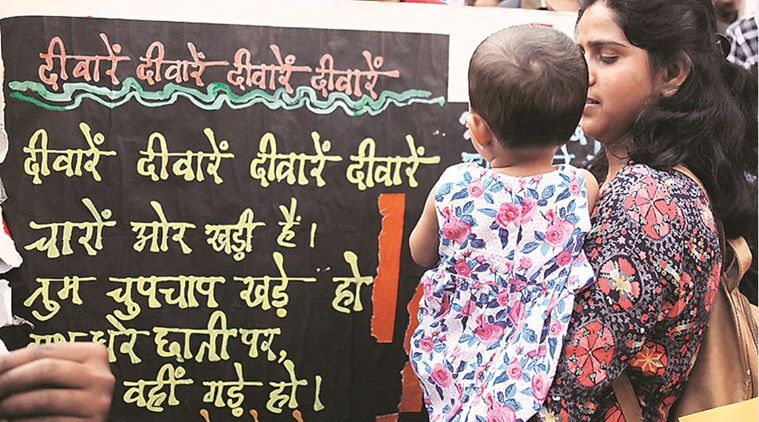 दीवारें दीवारें दीवारें दीवारें
दीवारें दीवारें दीवारें दीवारें
चारों ओर खड़ी हैं।
तुम चुपचाप खड़े हो
धरे छाती पर,
वहीं गड़े हो।